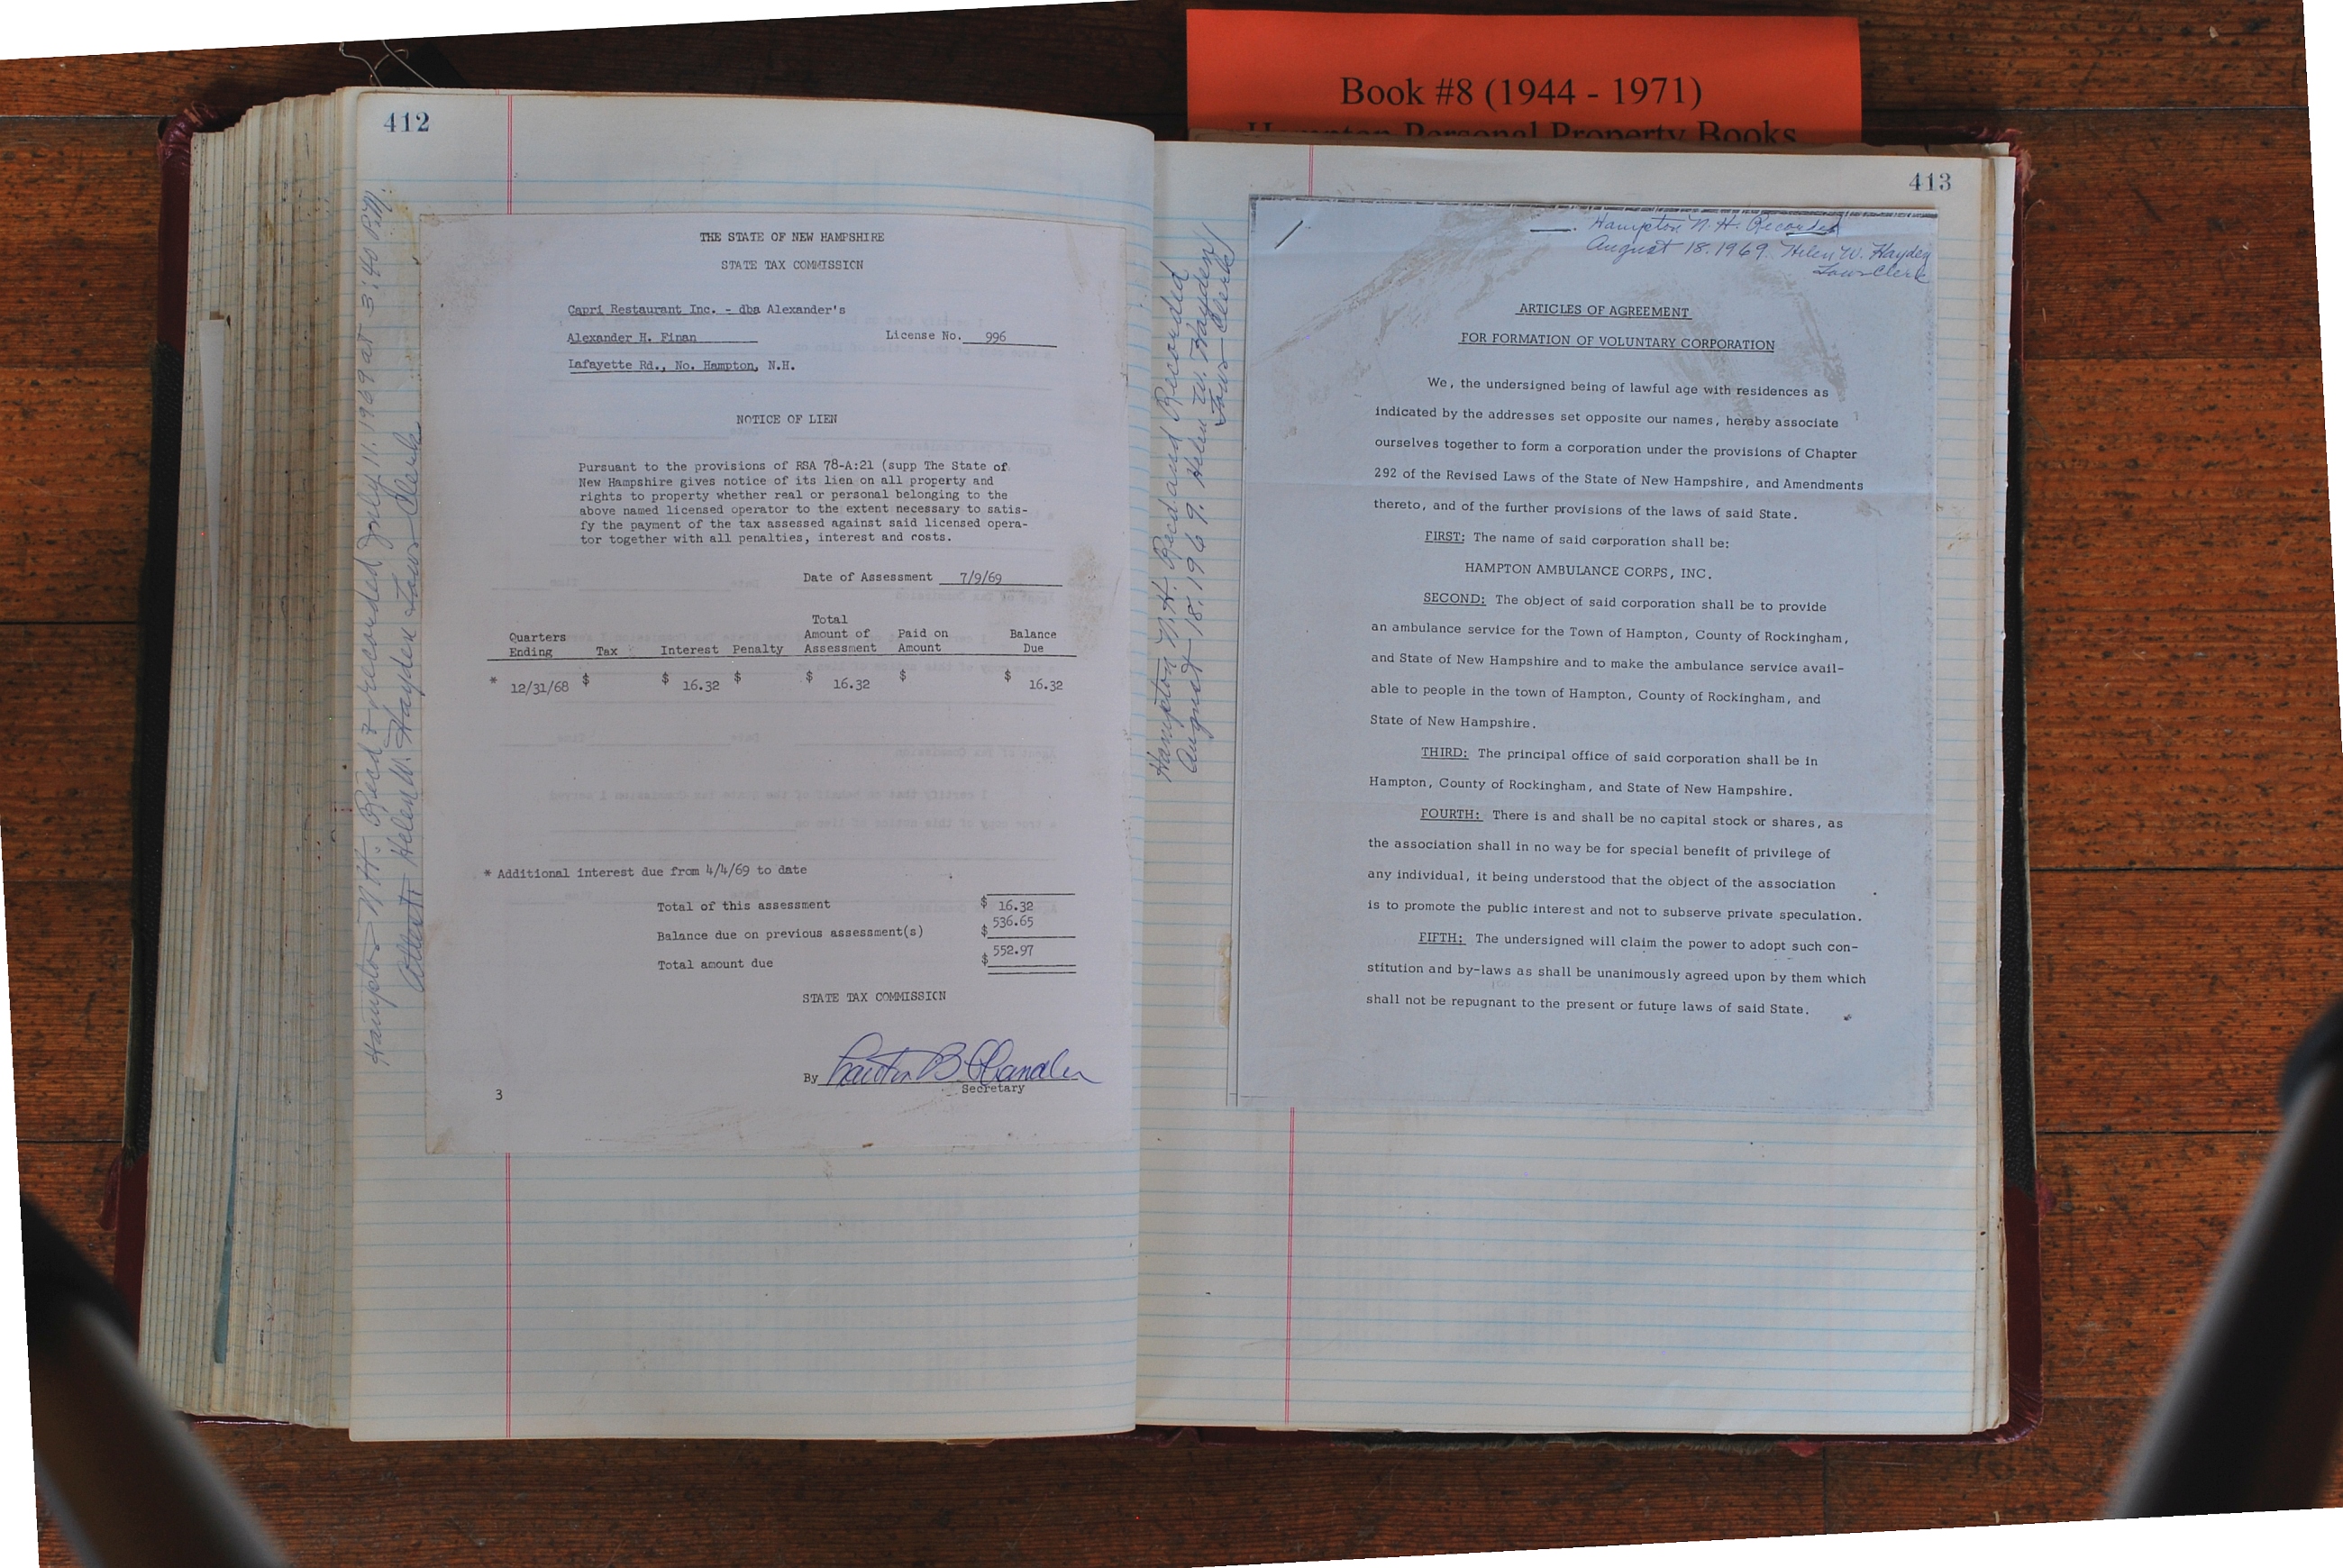 Book #8 (1944 - 1971)
Hampton Personal Property Books
412
Hampton N.H. Rec'd & recorded July 11, 1969 at 3:40 P.M.
Attest: Helen W. Hayden Town Clerk
THE STATE OF NEW HAMPSHIRE
STATE TAX COMMISSION
Capri Restaurant Inc. - dba Alexander's
Alexander H. Finan License No. 996
Lafayette Rd., No. Hampton, N.H.
NOTICE OF LIEN
Pursuant to the provisions of RSA 78-A:21 (supp The State of
New Hampshire gives notice of its lien on all property and
rights to property whether real or personal belonging to the
above named licensed operator to the extent necessary to satis-
fy the payment of the tax assessed against said licensed opera-
tor together with all penalties, interest and costs.
Date of Assessment 7/9/69
Total
Quarters Amount of Paid on Balance
Ending Tax Interest Penalty Assessment Amount Due
* 12/31/68 $ $ 16.32 $ $ 16.32 $ $ 16.32
* Additional interest due from 4/4/69 to date
Total of this assessment $ 16.32
Balance due on previous assessment(s) $ 536.65
Total amount due $ 552.97
STATE TAX COMMISSION
By
Secretary
3
413
Hampton N.H. Rec'd and Recorded
August 18, 1969. Helen W. Hayden
Town Clerk
Hampton N.H. Recorded
August 18, 1969. Helen W. Hayden
Town Clerk
ARTICLES OF AGREEMENT
FOR FORMATION OF VOLUNTARY CORPORATION
We, the undersigned being of lawful age with residences as
indicated by the addresses set opposite our names, hereby associate
ourselves together to form a corporation under the provisions of Chapter
292 of the Revised Laws of the State of New Hampshire, and Amendments
thereto, and of the further provisions of the laws of said State.
FIRST: The name of said corporation shall be:
HAMPTON AMBULANCE CORPS, INC.
SECOND: The object of said corporation shall be to provide
an ambulance service for the Town of Hampton, County of Rockingham,
and State of New Hampshire and to make the ambulance service avail-
able to people in the town of Hampton, County of Rockingham, and
State of New Hampshire.
THIRD: The principal office of said corporation shall be in
Hampton, County of Rockingham, and State of New Hampshire.
FOURTH: There is and shall be no capital stock or shares, as
the association shall in no way be for special benefit of privilege of
any individual, it being understood that the object of the association
is to promote the public interest and not to subserve private speculation.
FIFTH: The undersigned will claim the power to adopt such con-
stitution and by-laws as shall be unanimously agreed upon by them which
shall not be repugnant to the present or future laws of said State.